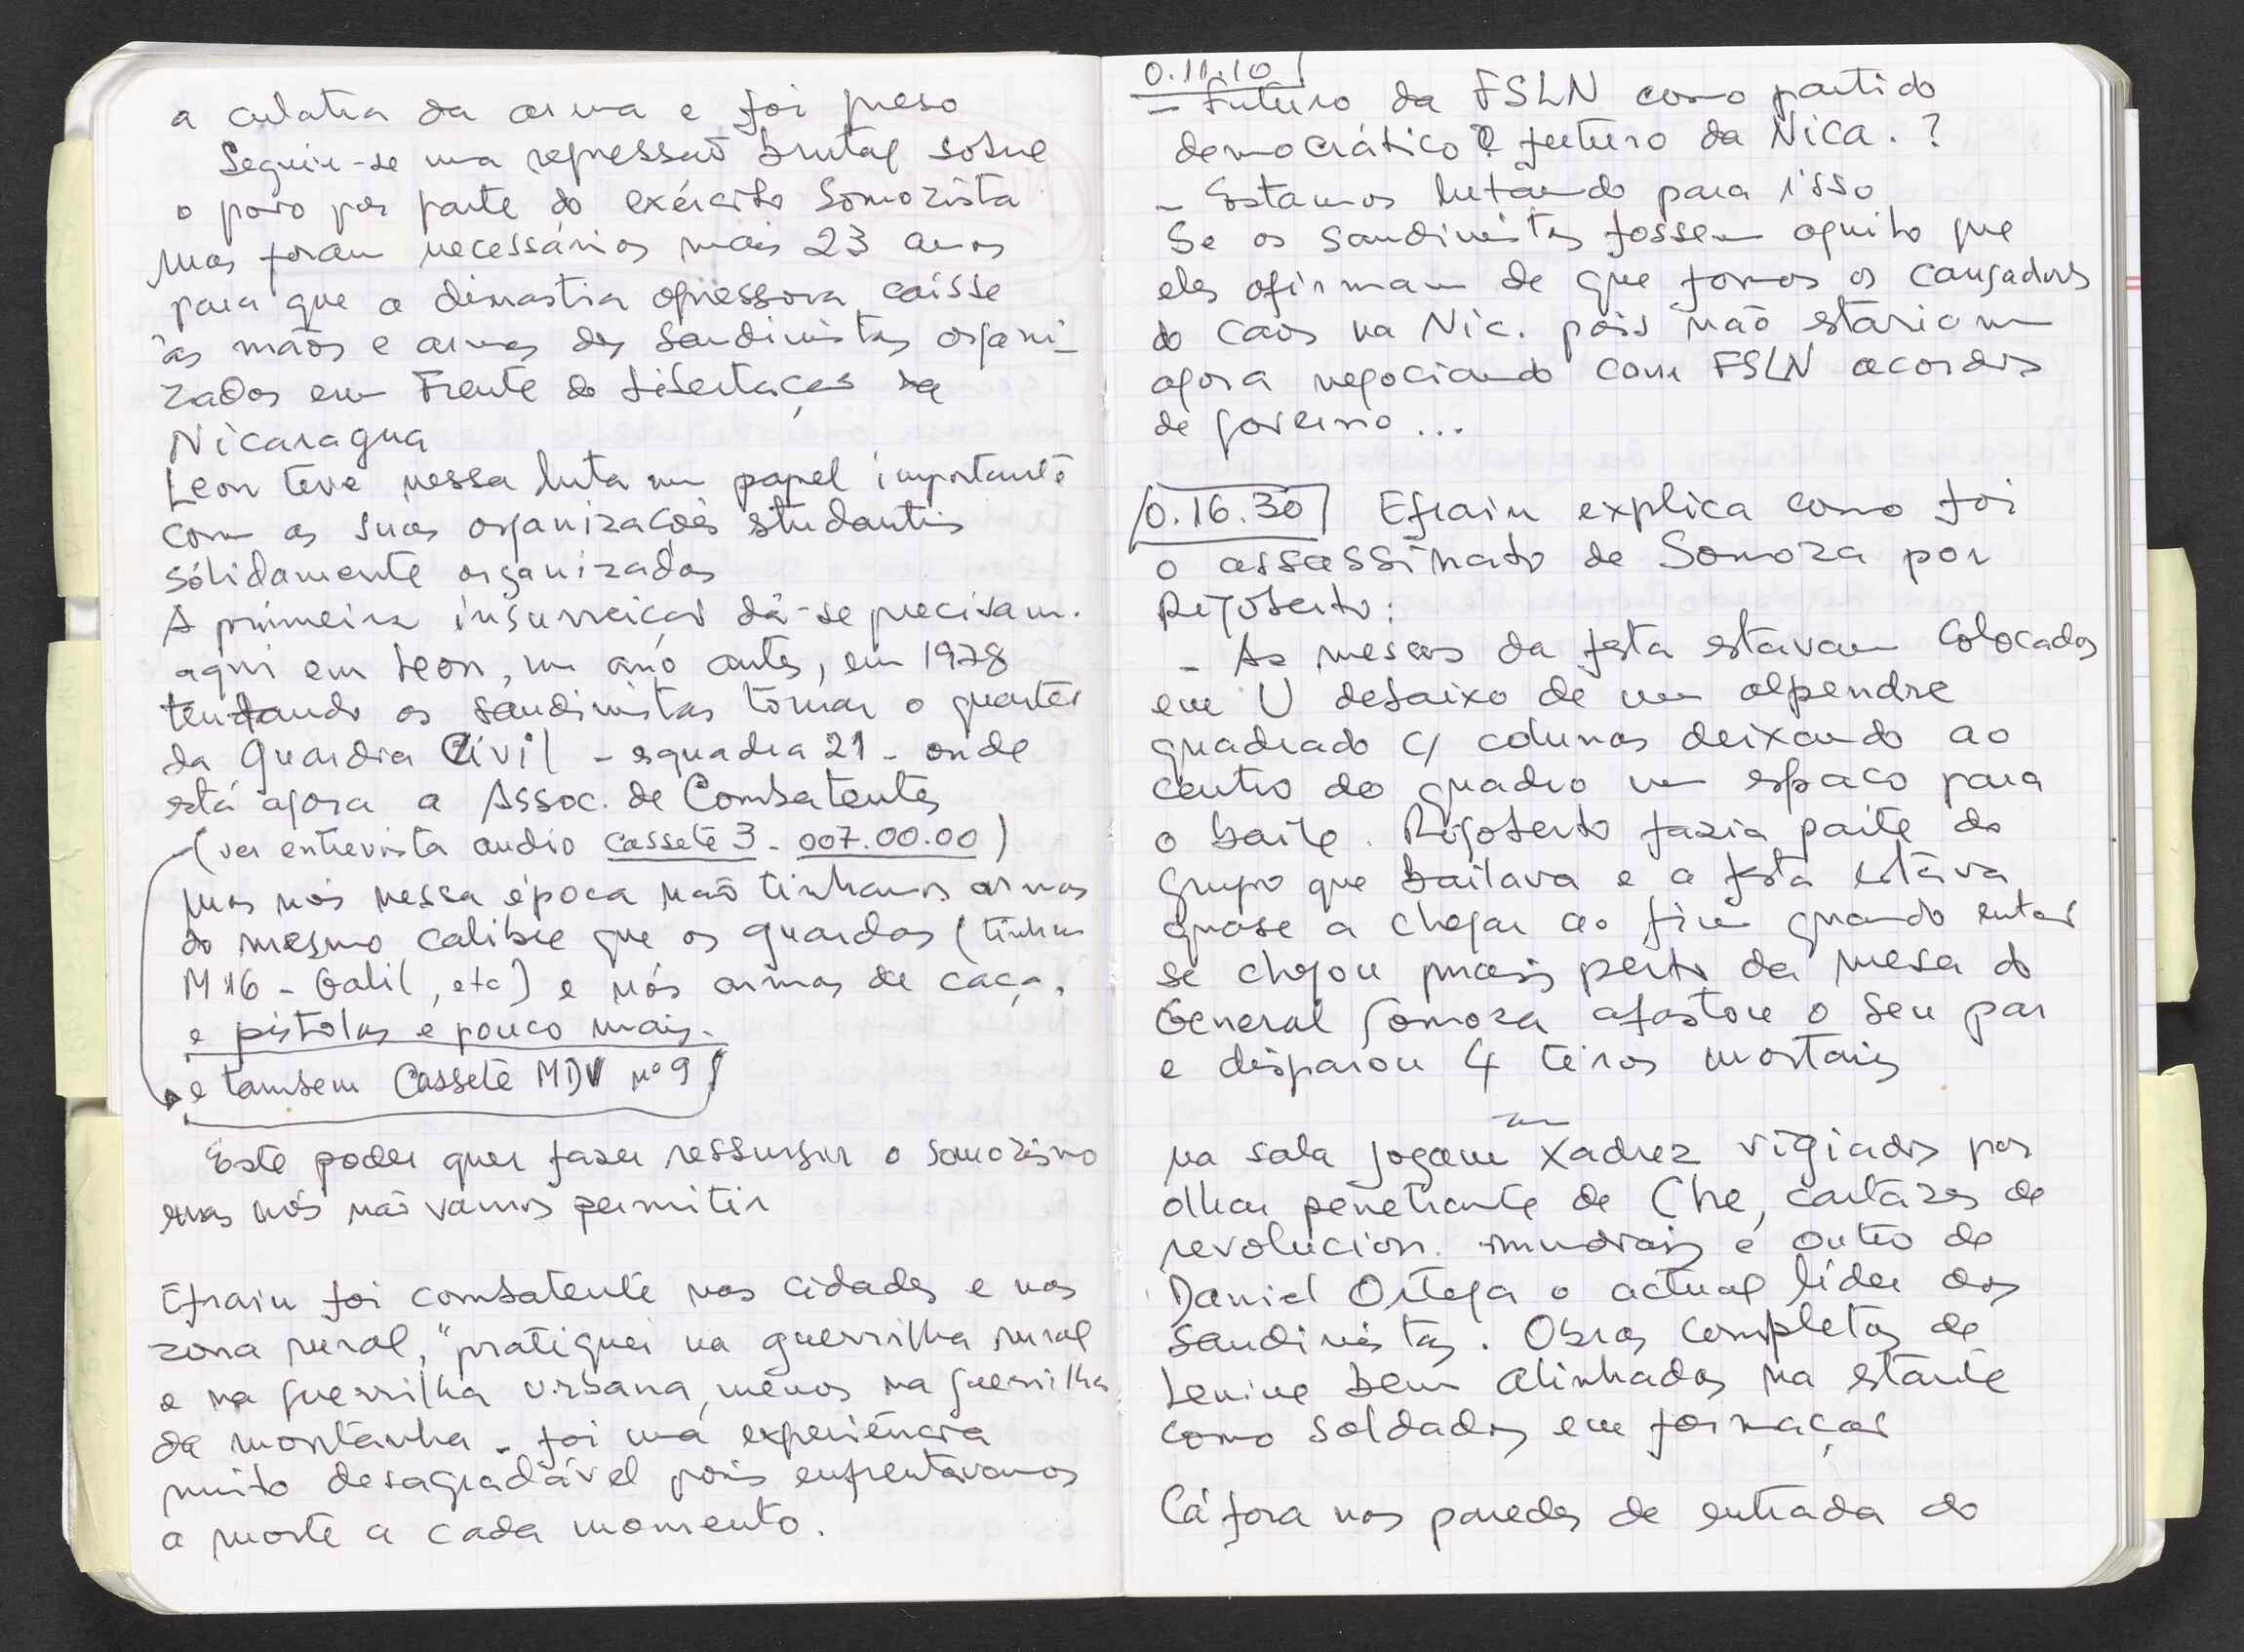 a culatra da arma e foi preso
Seguiu-se uma repressão brutal sobre
o povo por parte do exército Somozista
Mas foram necessários mais 23 anos
para que a dinastia opressora caísse
às mãos e armas dos Sandinistas organi-
zados em Frente de Libertação da
Nicaragua
Leon teve nessa luta um papel importante
com as suas organizações studantis
sólidamente organizadas
A primeira insurreição dá-se precisam.
aqui em Leon, um ano antes, em 1978
tentando os sandinistas tomar o quartel
da Guardia Civil - esquadra 21 - onde
está agora a Assoc. de Combatentes
(ver entrevista audio cassete 3 - 007.00.00)
Mas nós nessa época não tinhamos armas
do mesmo calibre que os guardas (tinham
M16 - Galil, etc) e nós armas de caça,
e pistolas e pouco mais.
e tambem Cassete MDV nº 9
Este poder quer fazer ressurgir o somozismo
mas nós não vamos permitir
Efrain foi combatente nas cidades e nas
zona rural, "pratiquei na guerrilha rural
e na guerrilha urbana, menos na guerrilha
da montanha - foi uma experiência
muito desagradável pois enfrentávamos
a morte a cada momento.
0.11.10
- Futuro da FSLN como partido
democrático e futuro da Nica. ?
- Estamos lutando para isso
Se os sandinistas fossem aquilo que
eles afirmam de que fomos os causadores
do caos na Nic. pois não estariam
agora negociando com FSLN acordos
de governo...
0.16.30 Efrain explica como foi
o assassinato de Somoza por
Rigoberto:
- As mesas da festa estavam colocadas
em U debaixo de um alpendre
quadrado c/ colunas deixando ao
centro do quadro um espaço para
o baile. Rigoberto fazia parte do
grupo que bailava e a festa estava
quase a chegar ao fim quando então
se chegou mais perto da mesa do
General Somoza afastou o seu par
e disparou 4 tiros mortais
na sala jogam xadrez vigiados por
olhar penetrante de Che, cartazes de
revolucion. mundiais e outro de
Daniel Ortega o actual líder dos
sandinistas. Obras completas de
Lenine bem alinhadas na estante
como soldados em formação
Cá fora nas paredes de entrada do